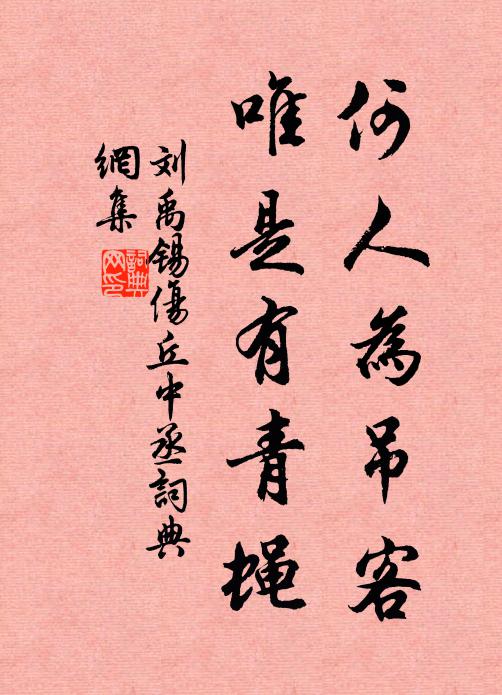 何人為吊客
唯是有青蝇
刘禹锡傷丘中丞詞典
網集
詞典
网印